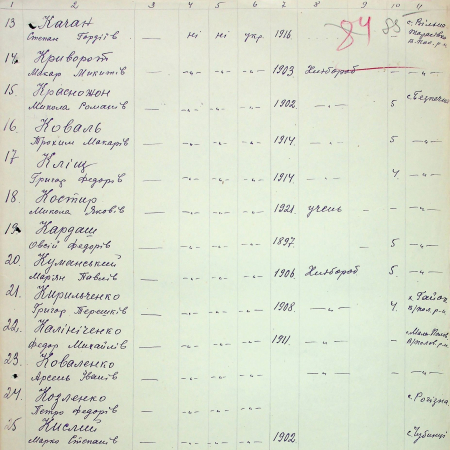 1 2 3 4 5 6 7 8 9 10 11
13 Качан
Степан Гордіїв — ні ні укр. 1916 84
14. Криворот
Макар Микитів — -"- -"- -"- 1903 Хлібороб — -"-
15. Красножон
Микола Романів — -"- -"- -"- 1902. -"- 5
16. Коваль
Трохим Макарів — -"- -"- -"- 1914. -"- 5 -"-
17 Кліщ
Григор Федорів — -"- -"- -"- 1914. -"- 4. -"-
18. Костир
Микола Яковів — -"- -"- -"- 1921. учень — -"-
19. Кардаш
Овсій Федорів — -"- -"- -"- 1897. -"- 5 -"-
20. Куманський
Мар'ян Павлів — -"- -"- -"- 1906 Хлібороб 5. -"-
21. Кирильченко
Григор Терешків — -"- -"- -"- 1908. -"- 4.
22. Калініченко
Федор Михайлів — -"- -"- -"- 1911. -"-
23. Коваленко
Арсень Іванів — -"- -"- -"-
24. Козленко
Петро Федорів — -"- -"- -"-
25 Кислий
Марко Степанів — -"- -"- -"- 1902